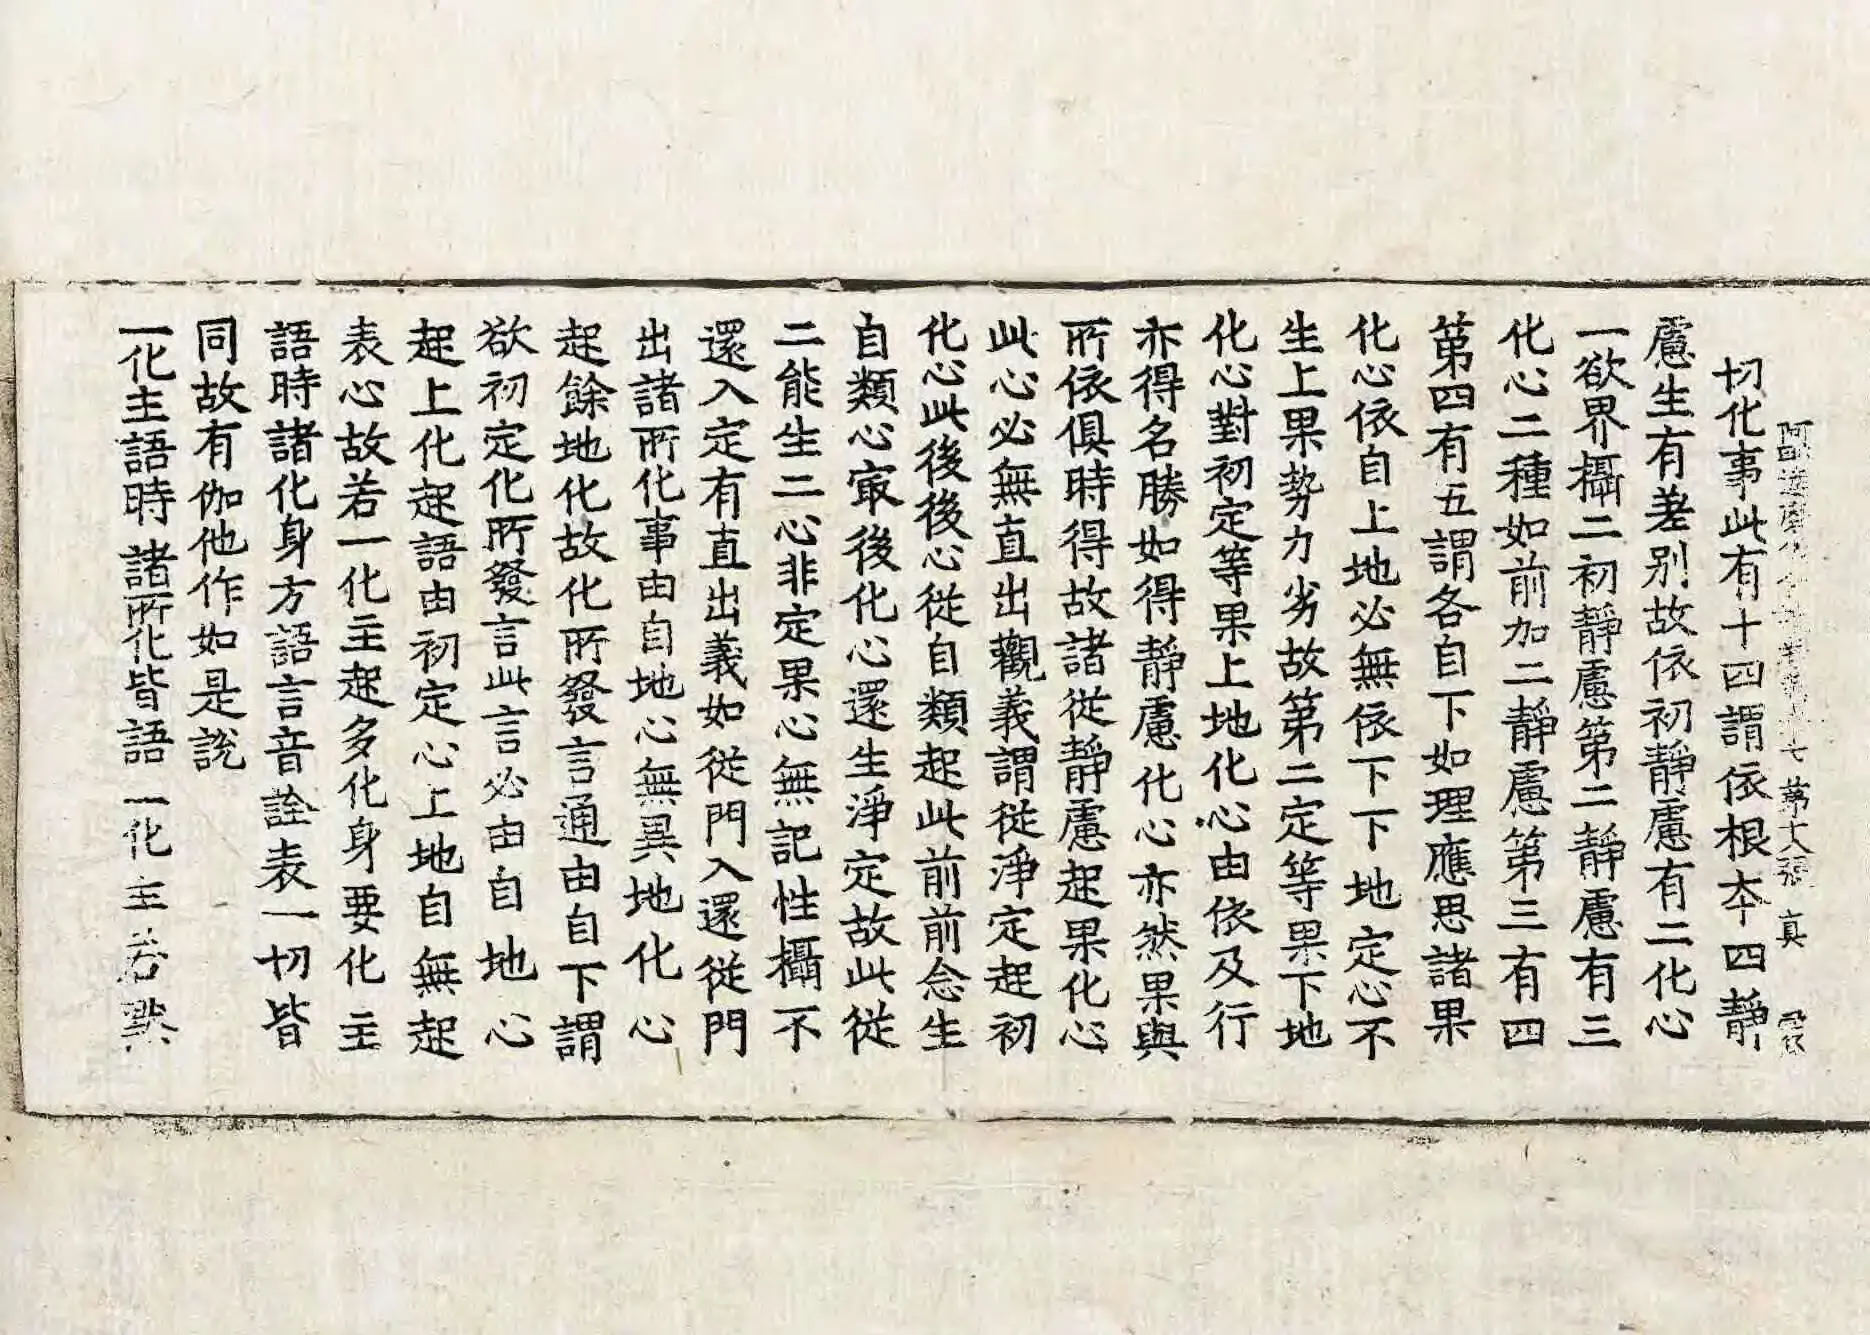 阿毗達磨 七 第大張 真
切化事此有十四謂依根夲四靜
慮生有差别故依初靜慮有二化心
一欲界攝二初靜慮第二靜慮有三
化心二種如前加二靜慮第三有四
第四有五謂各自下如理應思諸果
化心依自上地必無依下下地定心不
生上果勢力劣故第二定等果下地
化心對初定等果上地化心由依及行
亦得名勝如得靜慮化心亦然果與
所依俱時得故諸從靜慮起果化心
此心必無直出觀義謂從淨定起初
化心此後後心從自類起此前前念生
自類心㝡後化心還生淨定故此從
二能生二心非定果心無記性攝不
還入定有直出義如從門入還從門
出諸所化事由自地心無異地化心
起餘地化故化所發言通由自下謂
欲初定化所發言此言必由自地心
起上化起語由初定心上地自無起
表心故若一化主起多化身要化主
語時諸化身方語言音詮表一切皆
同故有伽他作如是說
一化主語時 諸所化皆語 一化主若默